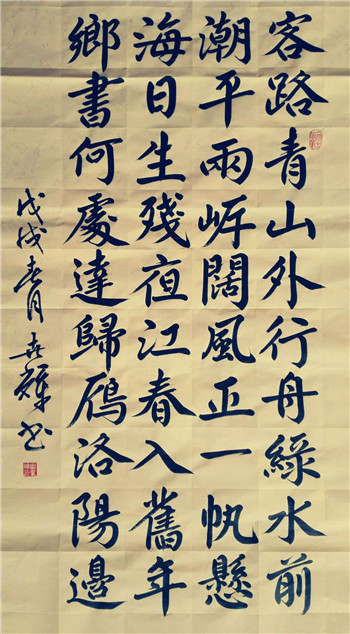 客路青山外行舟綠水前
潮平兩岸闊風正一帆懸
海日生殘夜江春入舊年
鄉書何處達歸鴈洛陽邊
戊戌春月